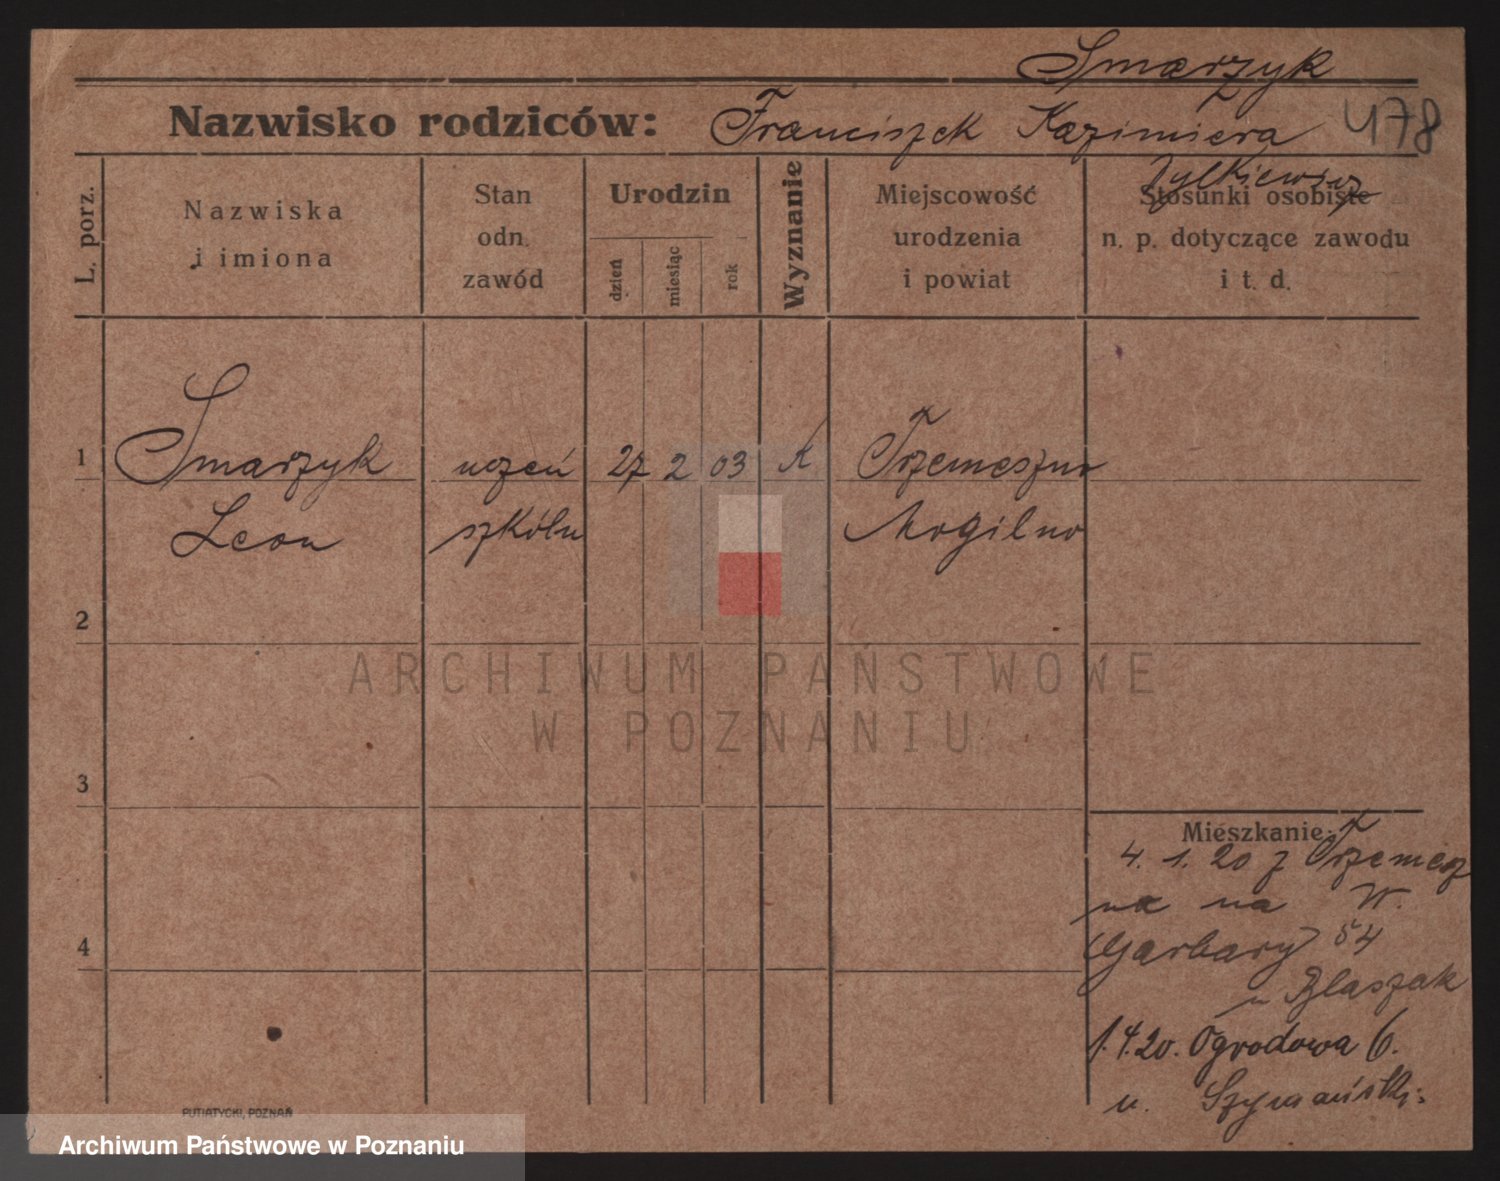 Smarzyk
Nazwisko rodziców: Franciszek Kazimiera 478
L. porz.
Nazwiska
i imiona
Stan
odn.
zawód
Urodzin
dzień
miesiąc
rok
Wyznanie
Miejscowość
urodzenia
i powiat
Stosunki osobiste
n. p. dotyczące zawodu
i t. d.
1 Smarzyk uczeń 27 2 03 K Trzemeszno
Leon szkoln Mogilno
2
3
4
ARCHIWUM PAŃSTWOWE
W POZNANIU
Mieszkanie:
4. 1. 20 z Trzemesz
na na W.
Garbary 54
u Błaszak
1.4.20. Ogrodowa 6.
u. Szymański:
PUTIATYCKI, POZNAŃ
Archiwum Państwowe w Poznaniu